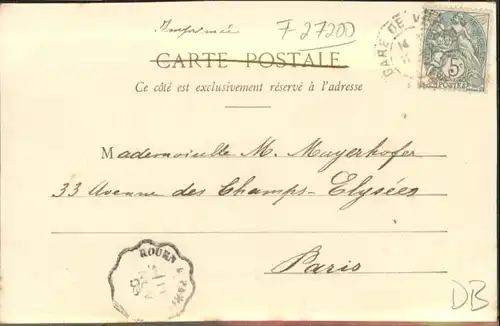 Imprimé
F 27200
GARE DE
5c
POSTES
CARTE POSTALE
Ce côté est exclusivement réservé à l'adresse
Mademoiselle M. Mayerhofer
33 Avenue des Champs-Elysées
Paris
ROUEN
DB